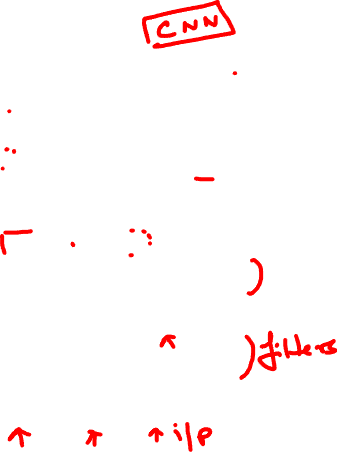 CNN
filters
i/p